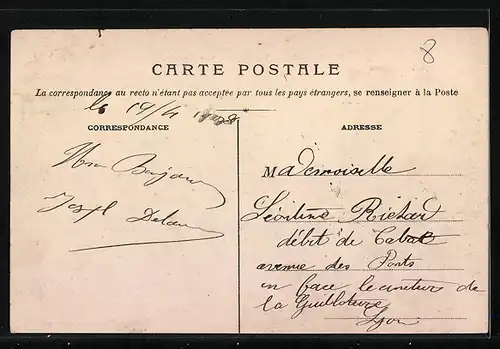 8
CARTE POSTALE
La correspondance au recto n'étant pas acceptée par tous les pays étrangers, se renseigner à la Poste
le 19/4
CORRESPONDANCE
ADRESSE
Mademoiselle
Léontine Richard
débit de Tabac
avenue des Ponts
en face le cimetière de
la Guillotière
Lyon
Bonjour
Joseph